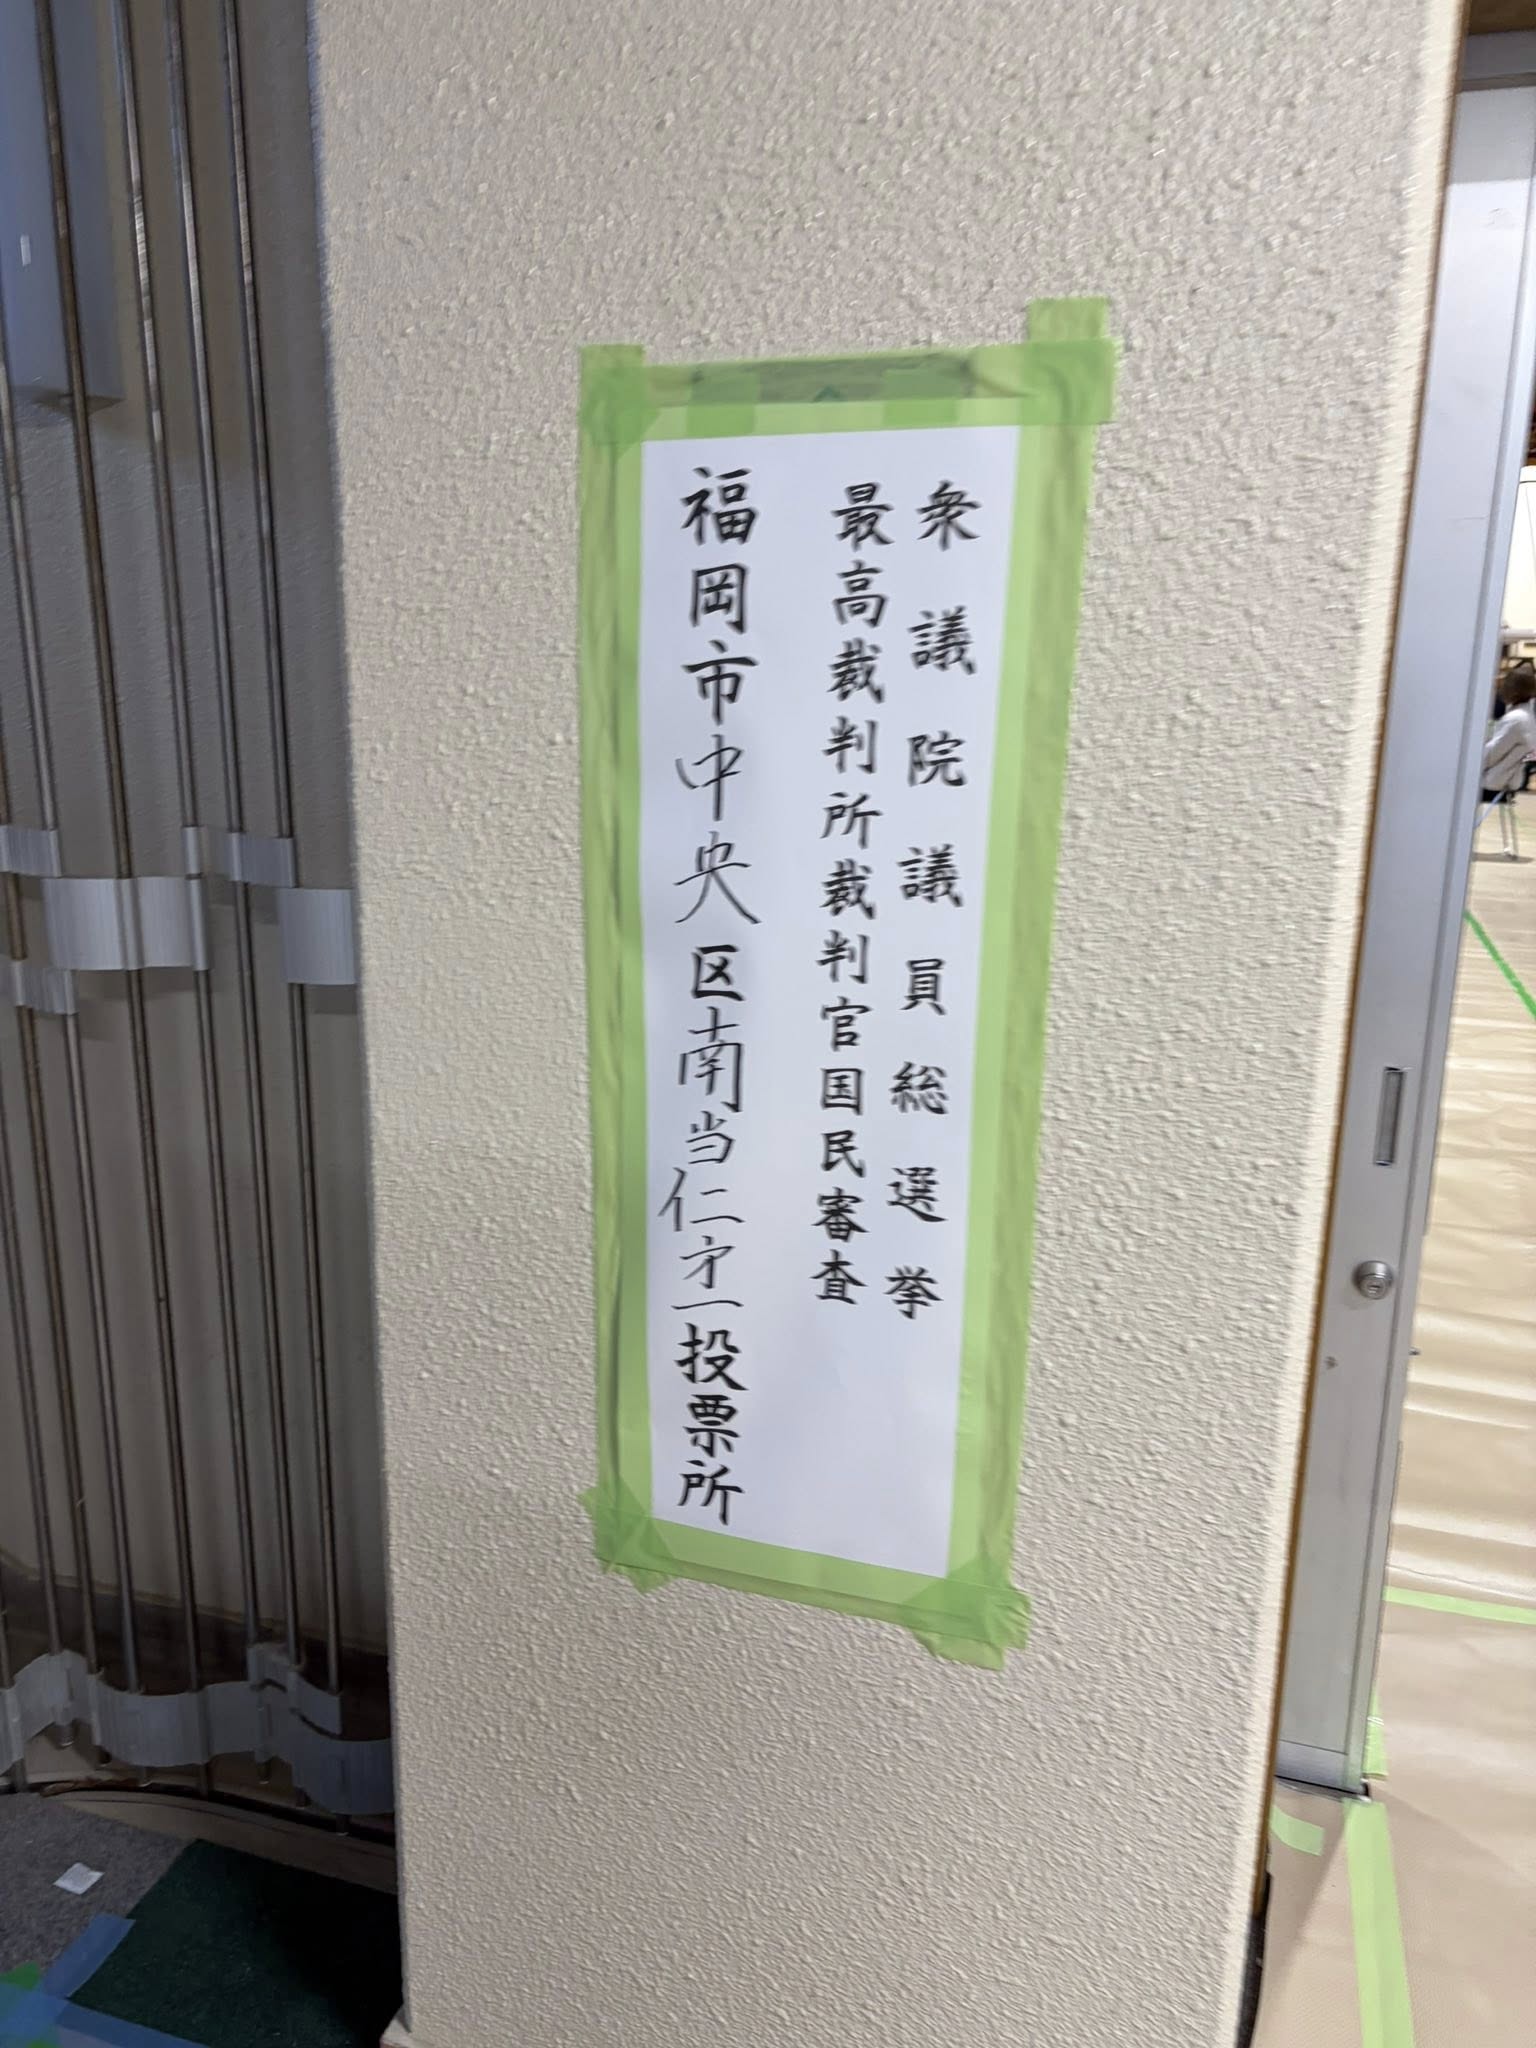 衆議院議員総選挙
最高裁判所裁判官国民審査
福岡市中央区南当仁才一投票所